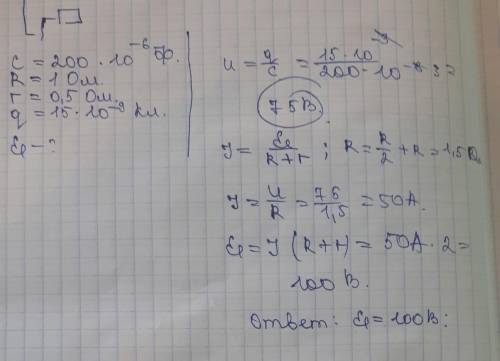 C = 200 · 10⁻⁶ Ф.
R = 1 Ом.
r = 0,5 Ом.
q = 15 · 10⁻³ Кл.
ℰ – ?
u = q/C = 15 · 10⁻³ / 200 · 10⁻⁶ =
75В.
J = ℰ/R+r ; R = R/2 + R = 1,5 Ω
J = U/R = 75/1,5 = 50А.
ℰ = J (R+r) = 50А · 2 =
100 В.
Ответ: ℰ = 100В: